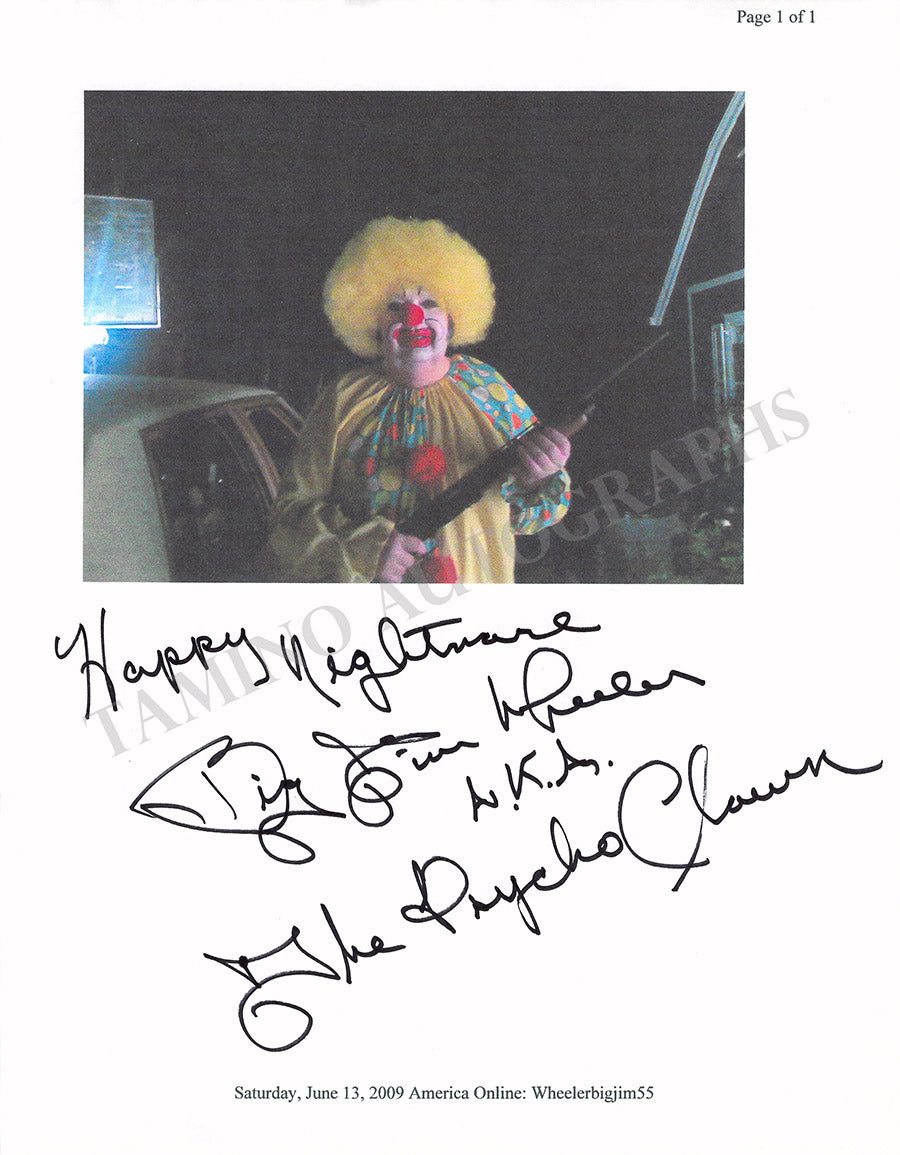 Page 1 of 1
TAMINO AUTOGRAPHS
Happy Nightmare
Big Jim Wheeler
A.K.A.
The Psycho Clown
Saturday, June 13, 2009 America Online: Wheelerbigjim55